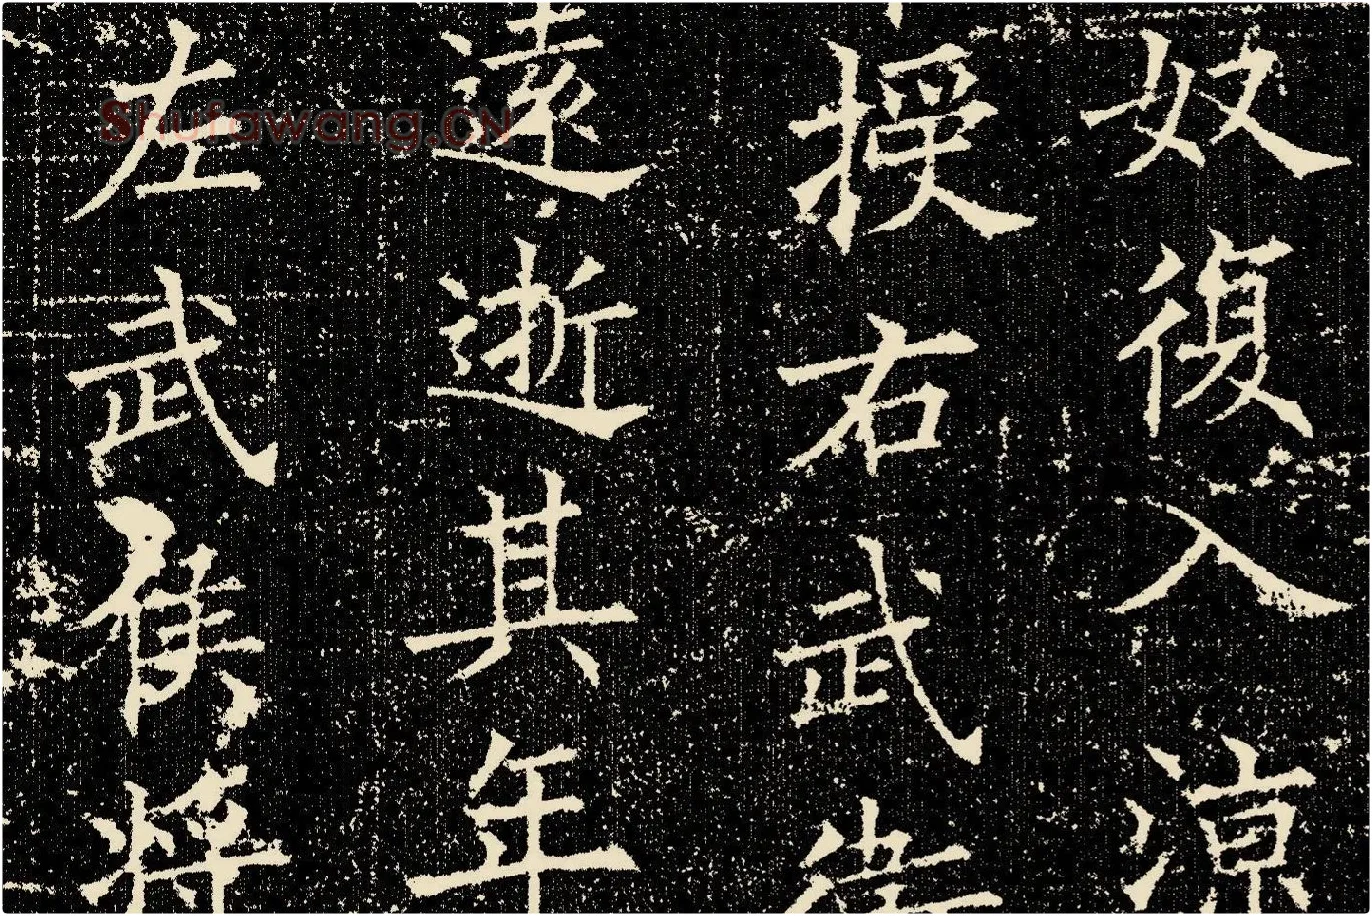 奴復入涼
授右武衛
遠逝其年
左武侯將
Shufawang.CN